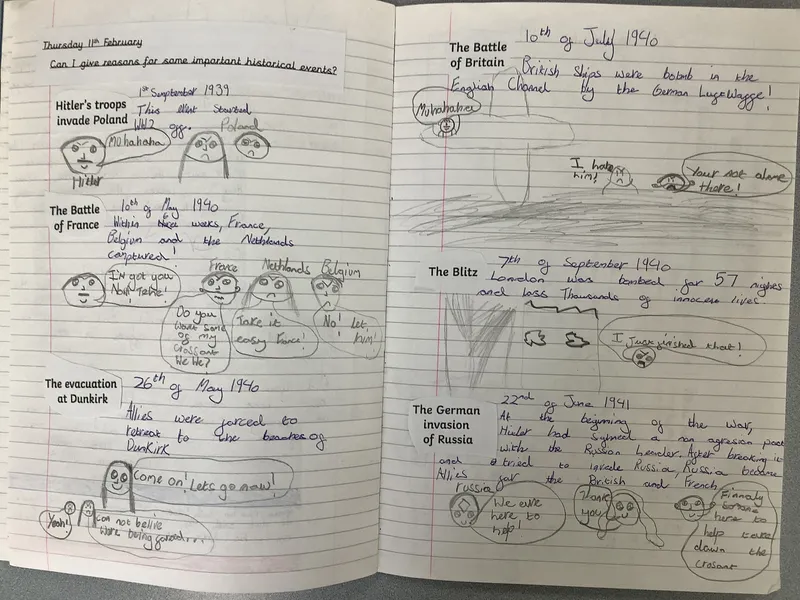 Thursday 11th February
Can I give reasons for some important historical events?
Hitler's troops
invade Poland
1st Semptember 1939
This event started
WW2 off.
Poland
Muhahaha
Hitler
The Battle
of France
10th of May 1940
Within 6 weeks, France,
Belgium and the Nethlands
captured!
I'v got you
Now
France
Nethlands
Belgium
Do you
want some
of my
crossant
We We?
Take it
easy France!
No! Let
him!
The evacuation
at Dunkirk
26th of May 1940
Allies were forced to
retreat to the beaches of
Dunkirk
Come on! Lets go now!
Yeah!
Can not belive
were being forced...
The Battle
of Britain
10th of July 1940
British ships were bobmb in the
English Channel by the German Luftwaffe!
Muhahaha
I hate
him!
Your not alone
there!
The Blitz
7th of September 1940
London was bombed for 57 nights
and loss thousands of innocent lives.
I Just finished that!
The German
invasion
of Russia
22nd of June 1941
At the beginning of the war,
Hitler had signed a non agresion pact
with the Russian leader. After breaking it
and tried to invade Russia, Russia became
Allies for the British and French
Russia
We are
here to
help!
Thank
you
Finnaly
here to
help
down the
crosant